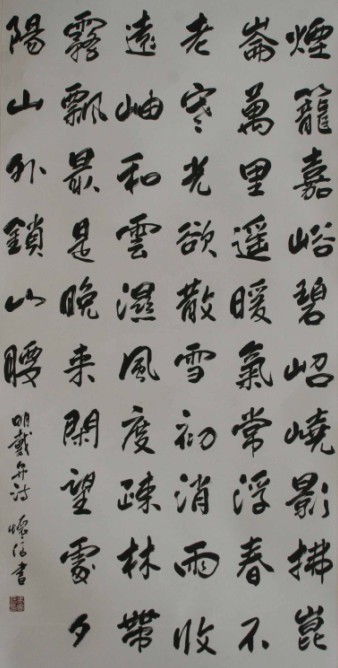 煙籠嘉峪碧岧嶢影拂崑
崙萬里遥暖氣常浮春不
老寒光欲散雪初消雨收
遠岫和雲濕風度疎林帶
霧飄最是晚来閑望處夕
陽山外鎖山腰
明戴弁詩 書